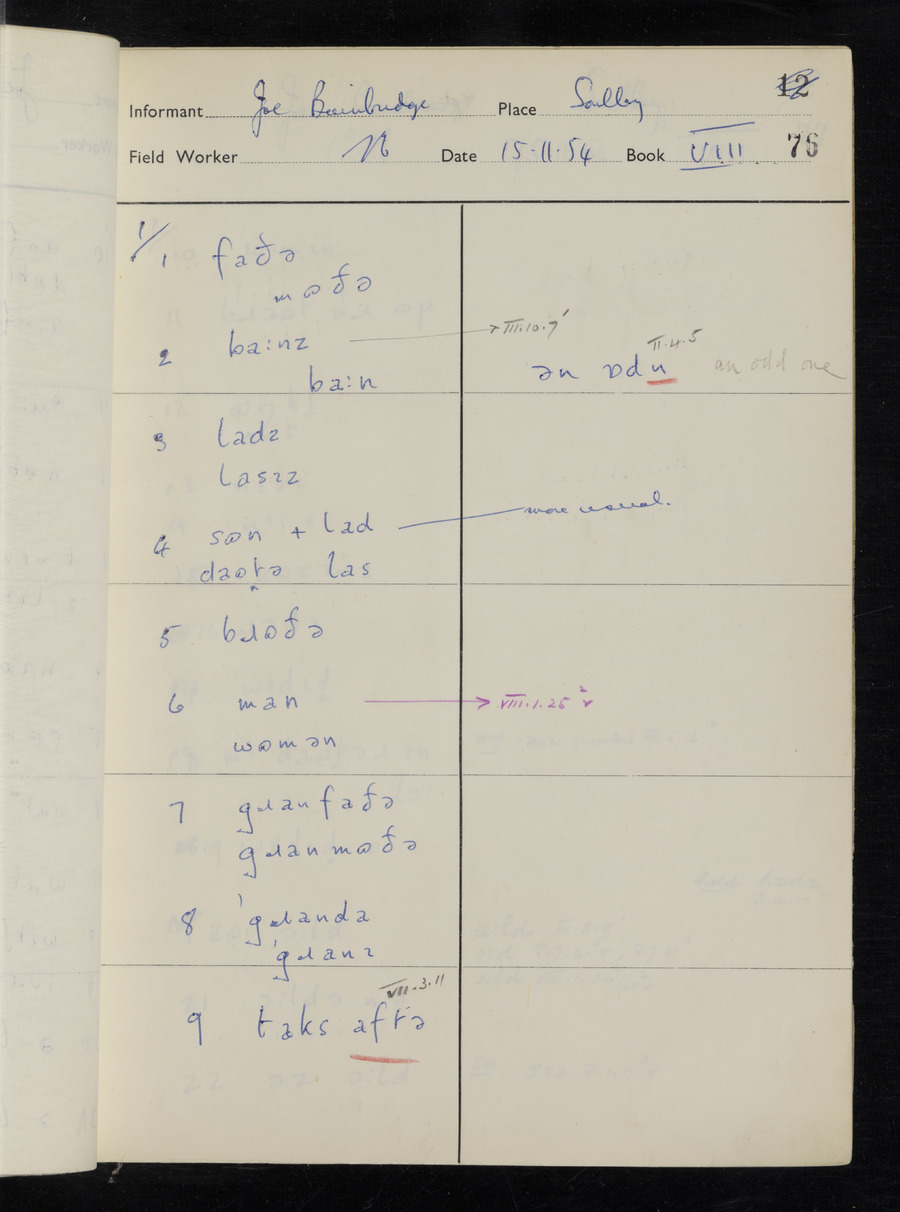 Informant Joe Bainbridge Place Soulby 12
Field Worker Date 15·11·54 Book VIII 76
1/ 1 faðə
mɷðə
2 ba:nz → III.10.7
ba:n
II.4.5
ən ɒdn an odd one
3 ladz
lasɪz
4 sɷn + lad — more usual.
daɷtə las
5 bɹɷðə
6 man → VIII.1.25
wɷmən
7 gɹanfaðə
gɹanmɷðə
8 ˈgɹanda
ˈgɹanɪ
VII.3.11
9 taks aftə